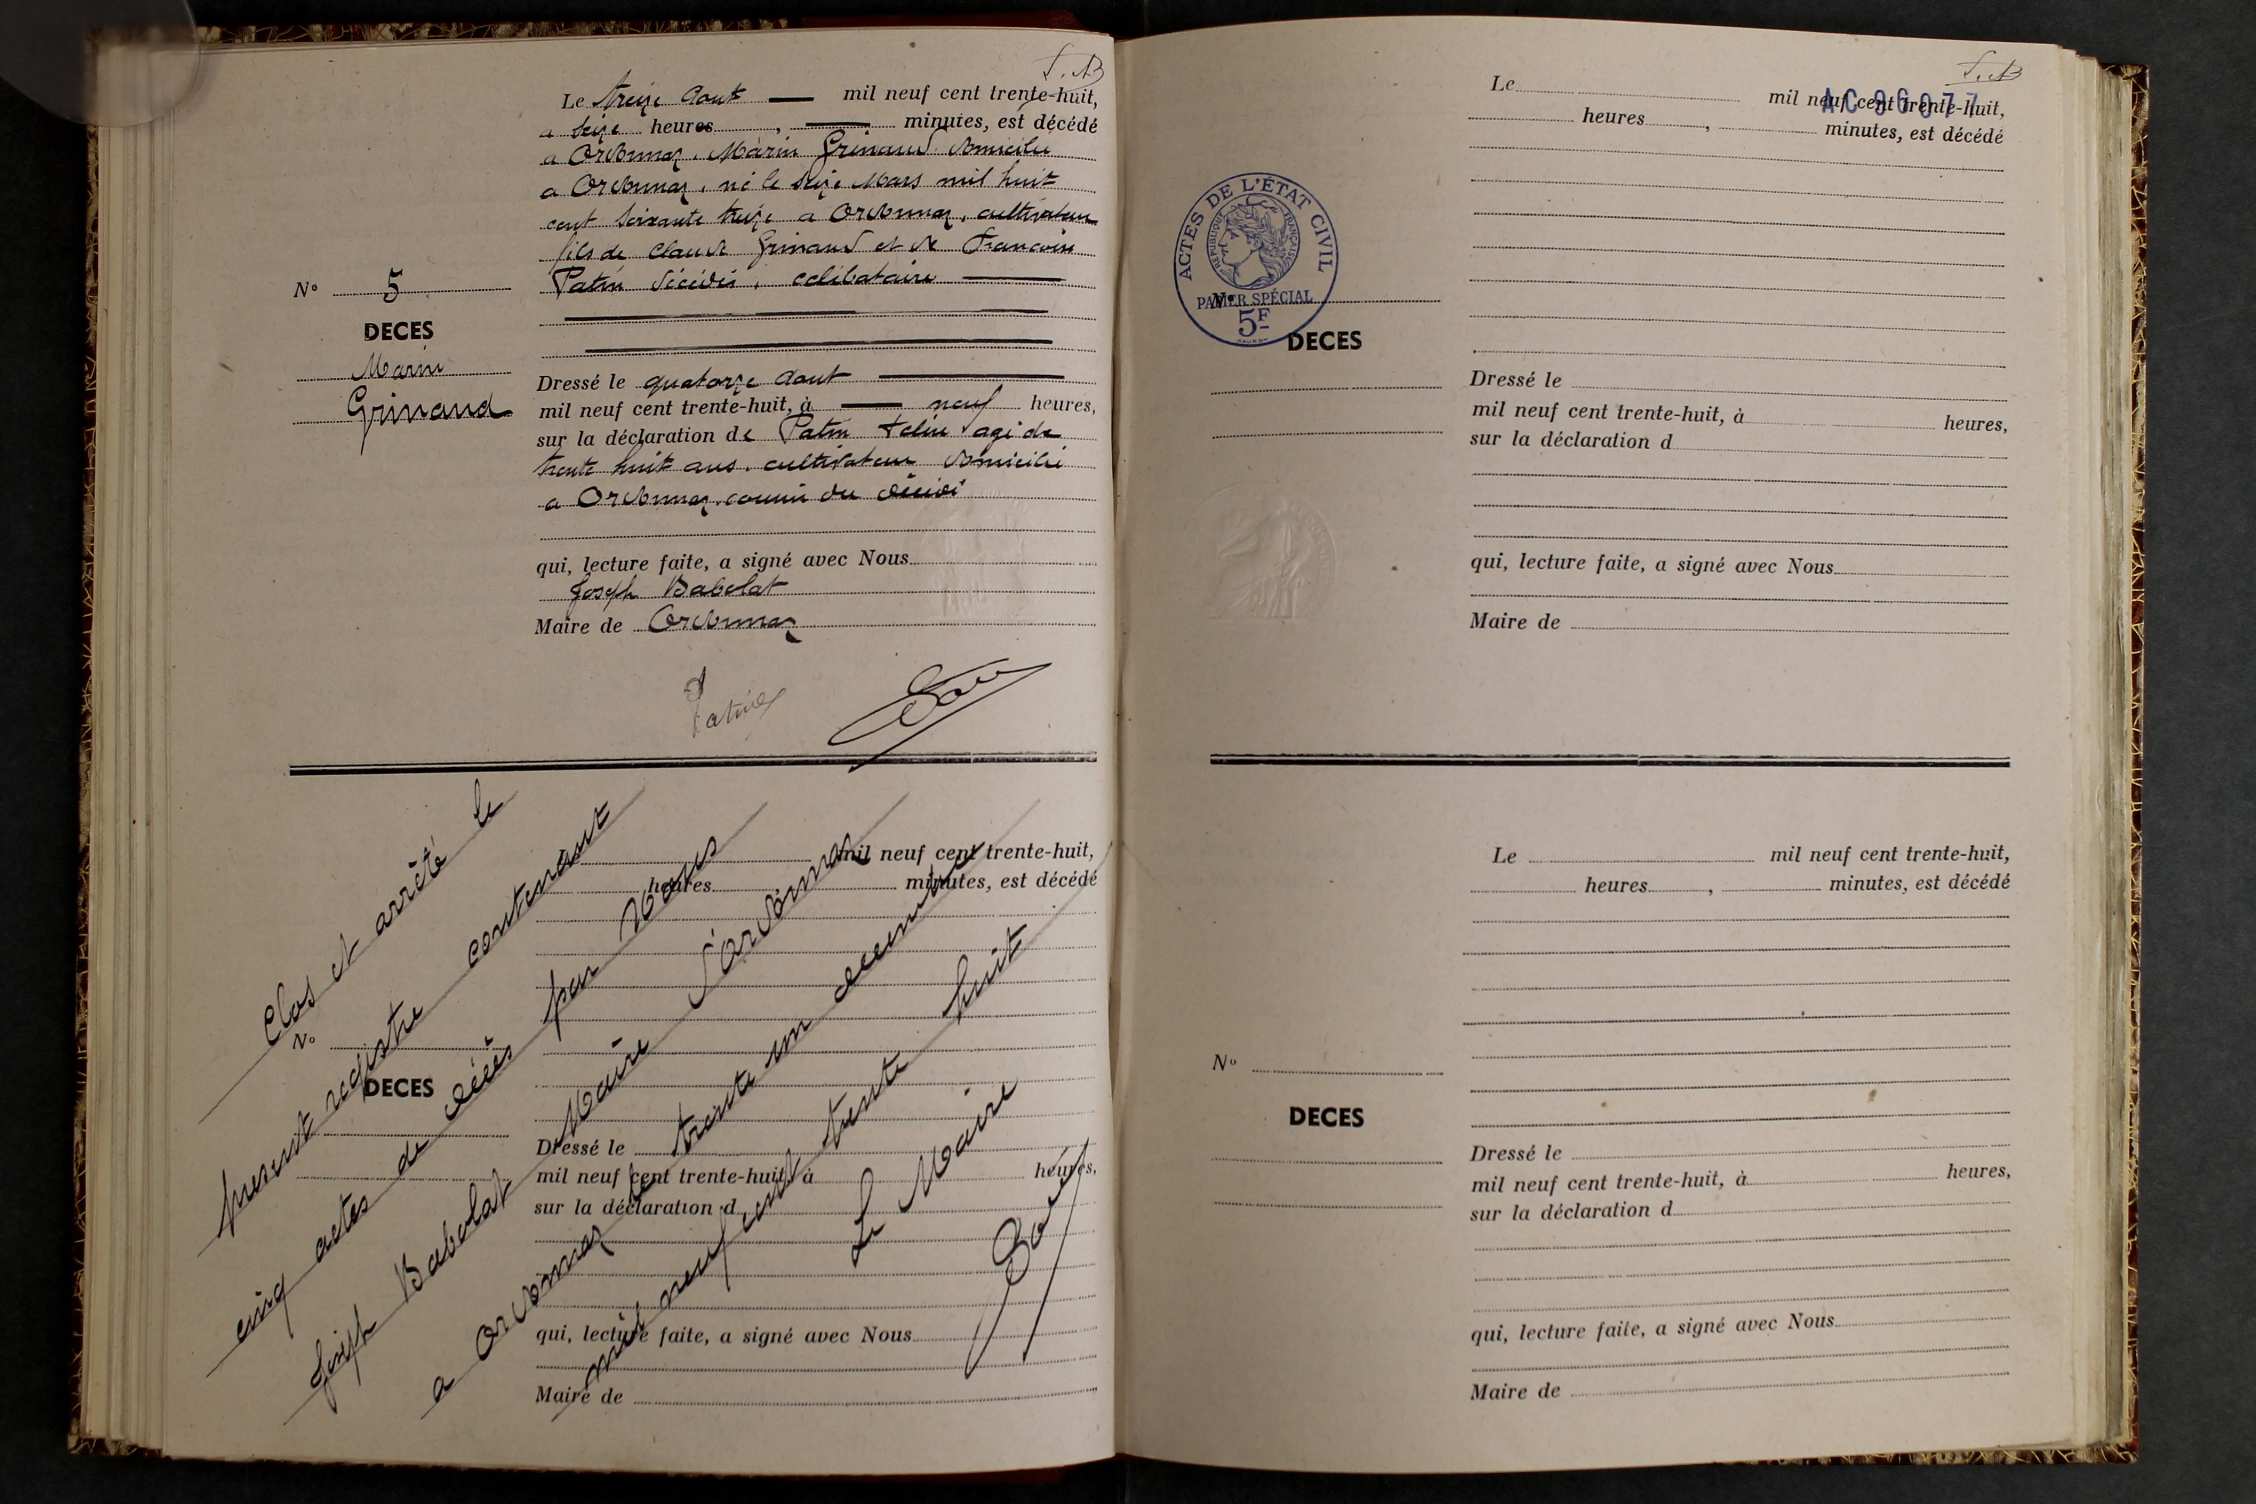 Le treize Aout mil neuf cent trente-huit,
a seize heures, minutes, est décédé
a Ordonnaz, Marin Grinand domicilié
a Ordonnaz, né le seize Mars mil huit
cent soixante treize a Ordonnaz, cultivateur
fils de Claude Grinand et de Francoise
Patin décédés, celibataire
N° 5
DECES
Marin
Grinand
Dressé le quatorze Aout
mil neuf cent trente-huit, à neuf heures,
sur la déclaration de Patin agé de
trente huit ans, cultivateur domicilié
a Ordonnaz, cousin du décédé
qui, lecture faite, a signé avec Nous
Joseph Babolat
Maire de Ordonnaz
Patin
Clos et arrêté le
present registre contenant
cinq actes de décès par Nous
Joseph Babolat Maire d'Ordonnaz
a Ordonnaz le trente un decembre
mil neuf cent trente huit
Le Maire
mil neuf cent trente-huit,
heures minutes, est décédé
N°
DECES
Dressé le
mil neuf cent trente-huit, à heures,
sur la déclaration d
qui, lecture faite, a signé avec Nous
Maire de
AC 96077
Le mil neuf cent trente-huit,
heures, minutes, est décédé
ACTES DE L'ÉTAT CIVIL
RÉPUBLIQUE FRANÇAISE
PAPIER SPÉCIAL
5F
N°
DECES
Dressé le
mil neuf cent trente-huit, à heures,
sur la déclaration d
qui, lecture faite, a signé avec Nous
Maire de
Le mil neuf cent trente-huit,
heures, minutes, est décédé
N°
DECES
Dressé le
mil neuf cent trente-huit, à heures,
sur la déclaration d
qui, lecture faite, a signé avec Nous
Maire de